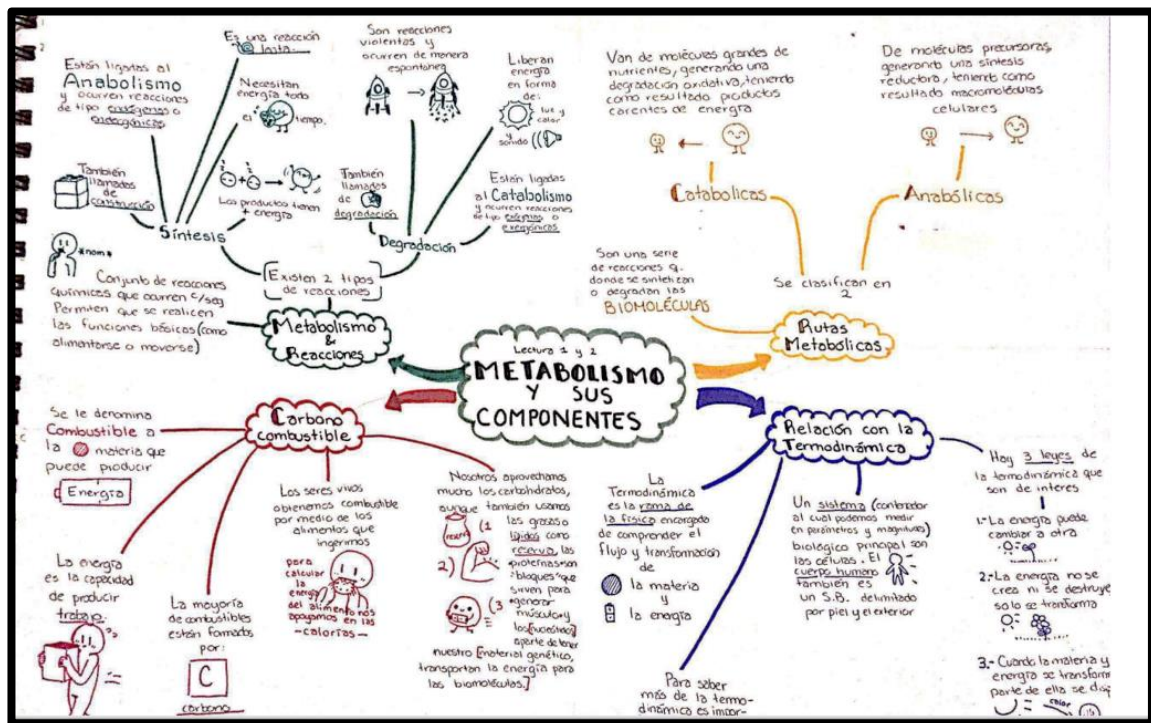 Lectura 1 y 2
METABOLISMO
Y SUS
COMPONENTES
Metabolismo
&
Reacciones
Conjunto de reacciones
químicas que ocurren c/seg
Permiten que se realicen
las funciones básicas (como
alimentarse o moverse)
*nom*
Existen 2 tipos
de reacciones
Síntesis
También
llamadas
de
construcción
Están ligadas al
Anabolismo
y ocurren reacciones
de tipo
o
endergónicas
Es una reacción
lenta
Necesitan
energía todo
el tiempo.
Los productos tienen
+ energía
Degradación
También
llamadas
de
degradación
Son reacciones
violentas y
ocurren de manera
espontánea
Liberan
energía
en forma
de:
luz y
calor
y
sonido
Están ligadas
al Catabolismo
y ocurren reacciones
de tipo
o
exergónicas
Rutas
Metabólicas
Son una serie
de reacciones q.
donde se sintetizan
o degradan las
BIOMOLÉCULAS
Se clasifican en
2
Catabólicas
Van de moléculas grandes de
nutrientes, generando una
degradación oxidativa, teniendo
como resultado productos
carentes de energía
Anabólicas
De moléculas precursoras,
generando una síntesis
reductora, teniendo como
resultado macromoléculas
celulares
Carbono
combustible
Se le denomina
Combustible a
la materia que
puede producir
Energía
La energía
es la capacidad
de producir
trabajo.
La mayoría
de combustibles
están formados
por:
C
carbono
Los seres vivos
obtenemos combustible
por medio de los
alimentos que
ingerimos
para
calcular
la
energía
del alimento nos
apoyamos en las
-calorías-
Nosotros aprovechamos
mucho los carbohidratos,
aunque también usamos
reserva
(1 las grasas o
lípidos como
reserva, las
2)
proteínas son
"bloques" que
sirven para
(3 generar
músculo y
los [nucleótidos]
aparte de tener
nuestro [material genético,
transportan la energía para
las biomoléculas.]
Relación con la
Termodinámica
La
Termodinámica
es la rama de
la física encargada
de comprender el
flujo y transformación
de
la materia
y
la energía
Para saber
más de la termo-
dinámica es impor-
Un sistema (contenedor
al cual podemos medir
en parámetros y magnitudes)
biológico principal son
las células. El
cuerpo humano
también es
un S.B. delimitado
por piel y el exterior
Hay 3 leyes de
la termodinámica que
son de interés
1.- La energía puede
cambiar a otra
2.- La energía no se
crea ni se destruye
solo se transforma
3.- Cuando la materia y
energía se transform
parte de ella se disi
calor